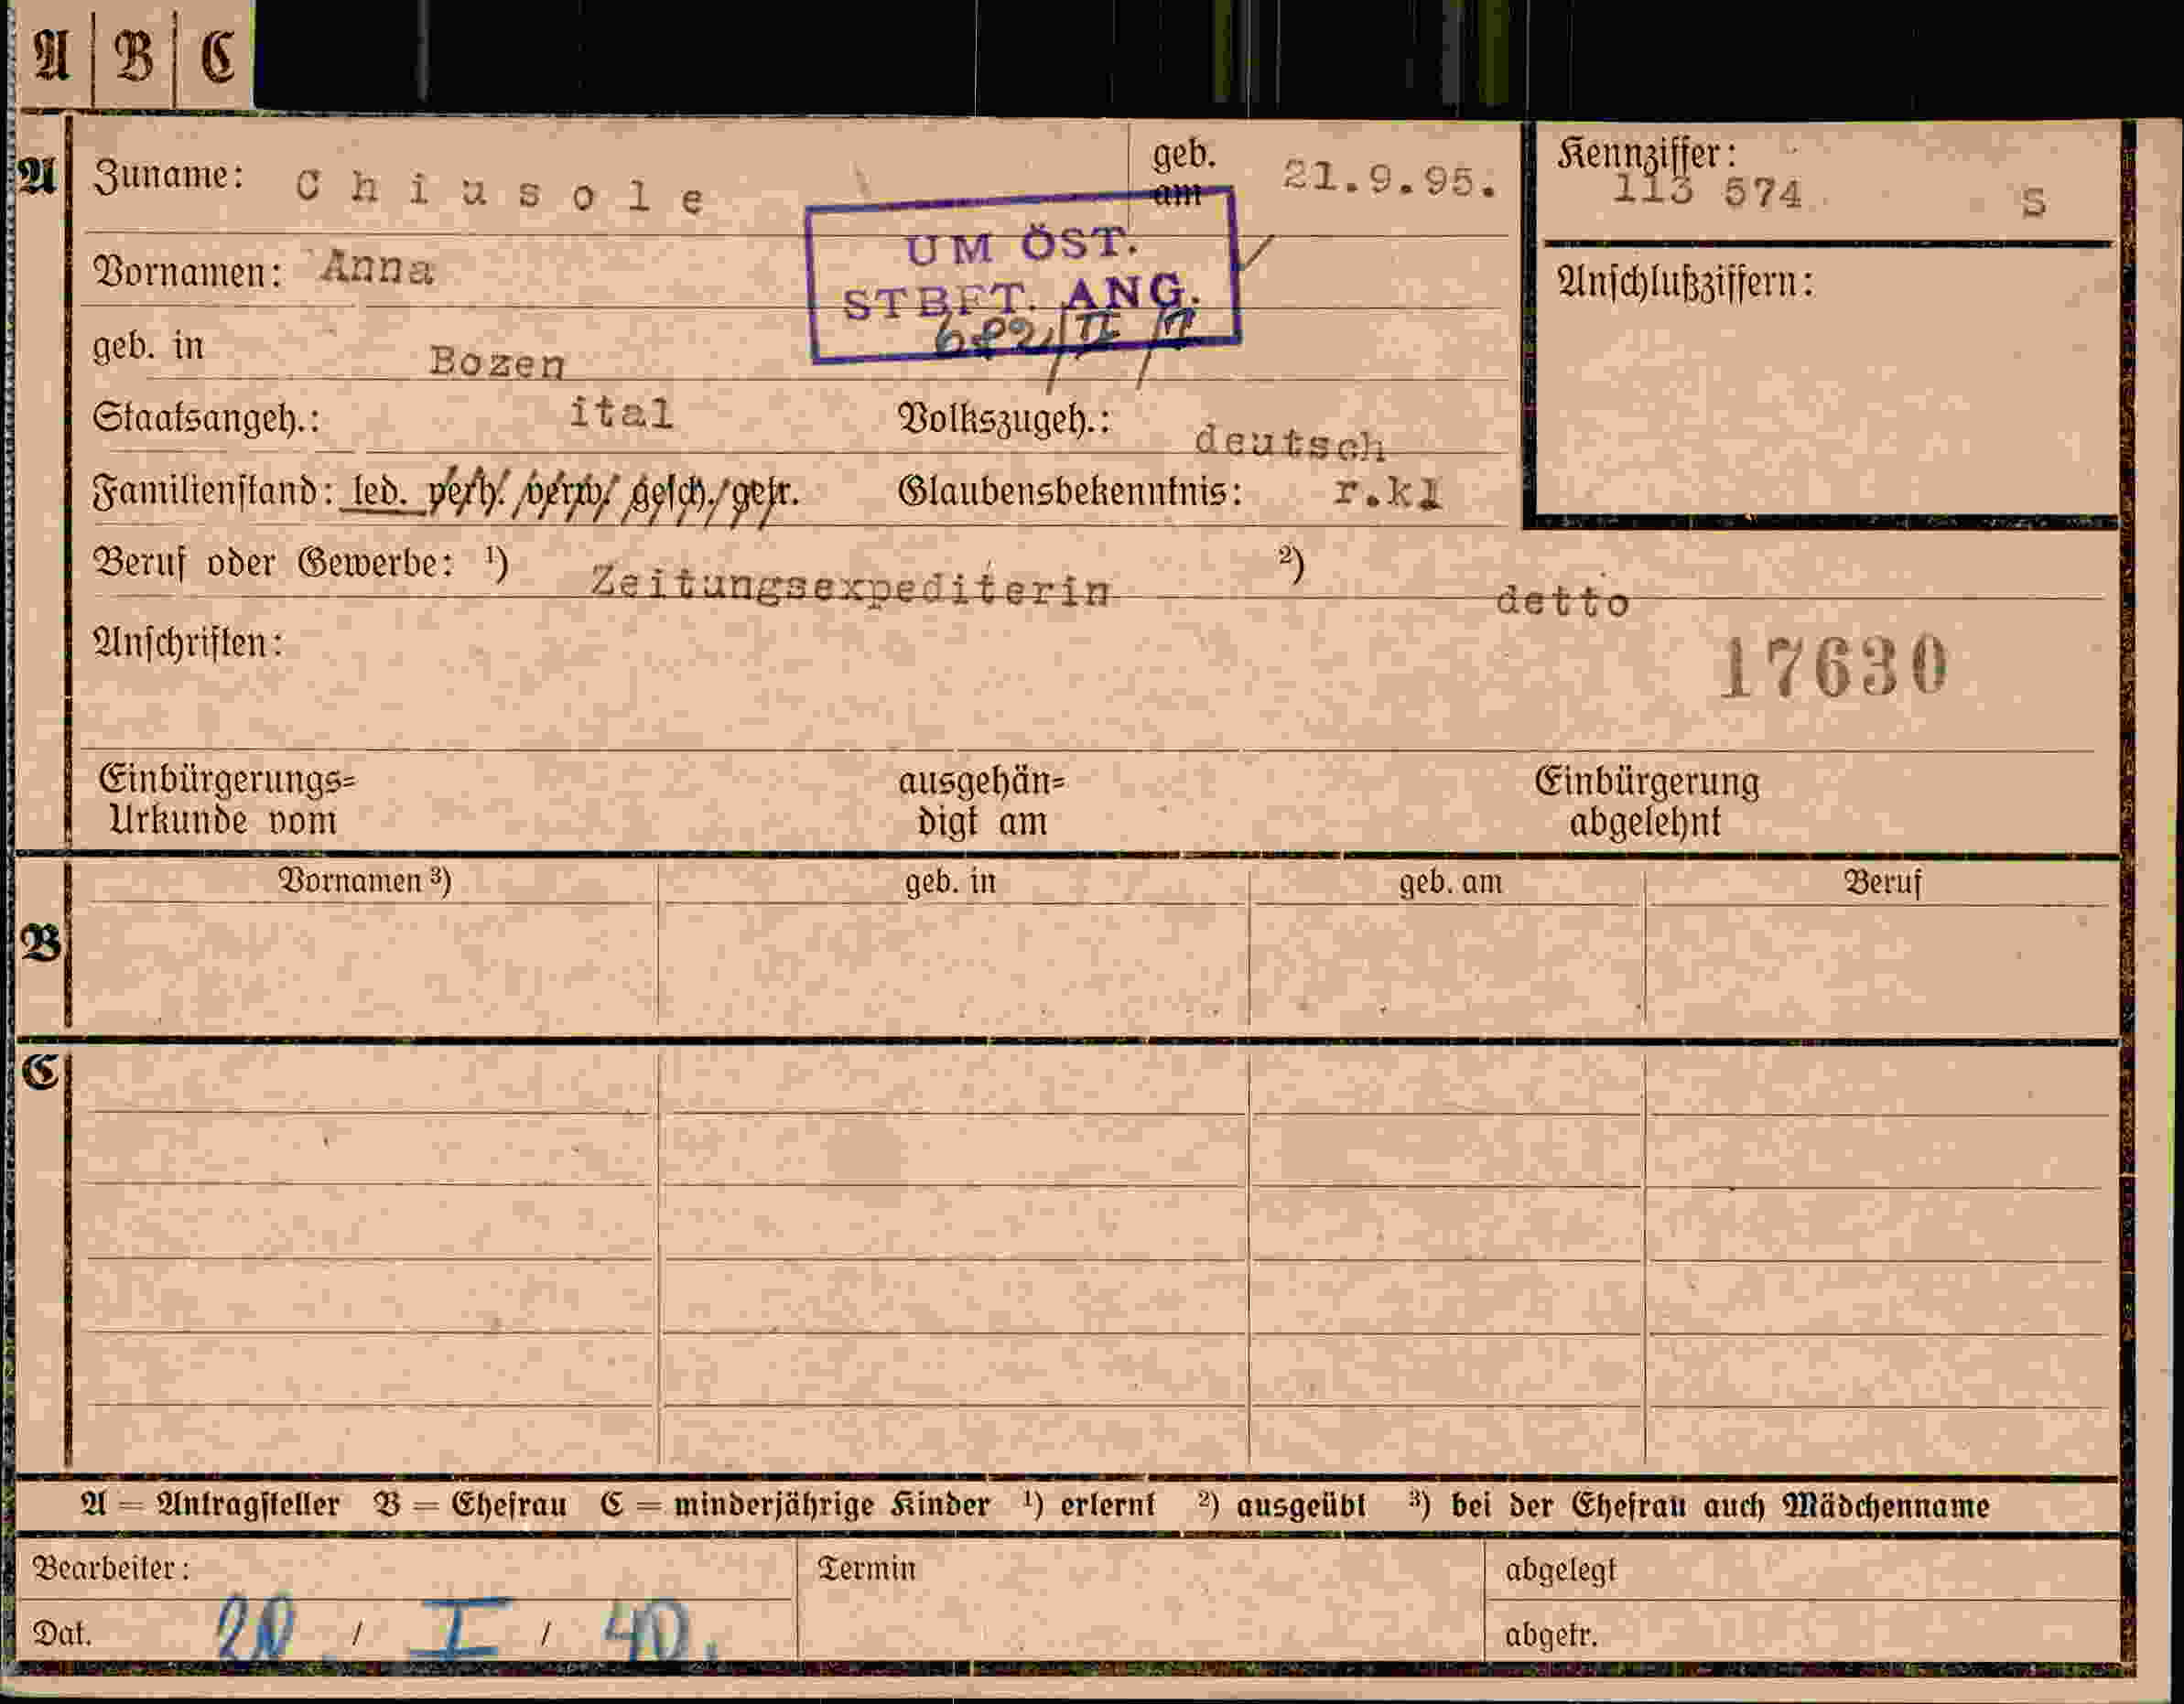 A B C
A Zuname: Chiusole geb. am 21.9.95. Kennziffer: 113 574 S
UM ÖST.
STBFT. ANG.
Vornamen: Anna Anschlußziffern:
geb. in Bozen
Staatsangeh.: ital Volkszugeh.: deutsch
Familienstand: led. verh. verw. gesch. getr. Glaubensbekenntnis: r.kl
Beruf oder Gewerbe: ¹) Zeitungsexpediterin ²) detto
Anschriften: 17630
Einbürgerungs= ausgehän= Einbürgerung
Urkunde vom digt am abgelehnt
B Vornamen ³) geb. in geb. am Beruf
C
A = Antragsteller B = Ehefrau C = minderjährige Kinder ¹) erlernt ²) ausgeübt ³) bei der Ehefrau auch Mädchenname
Bearbeiter: Termin abgelegt
Dat. 20. / I / 40. abgetr.